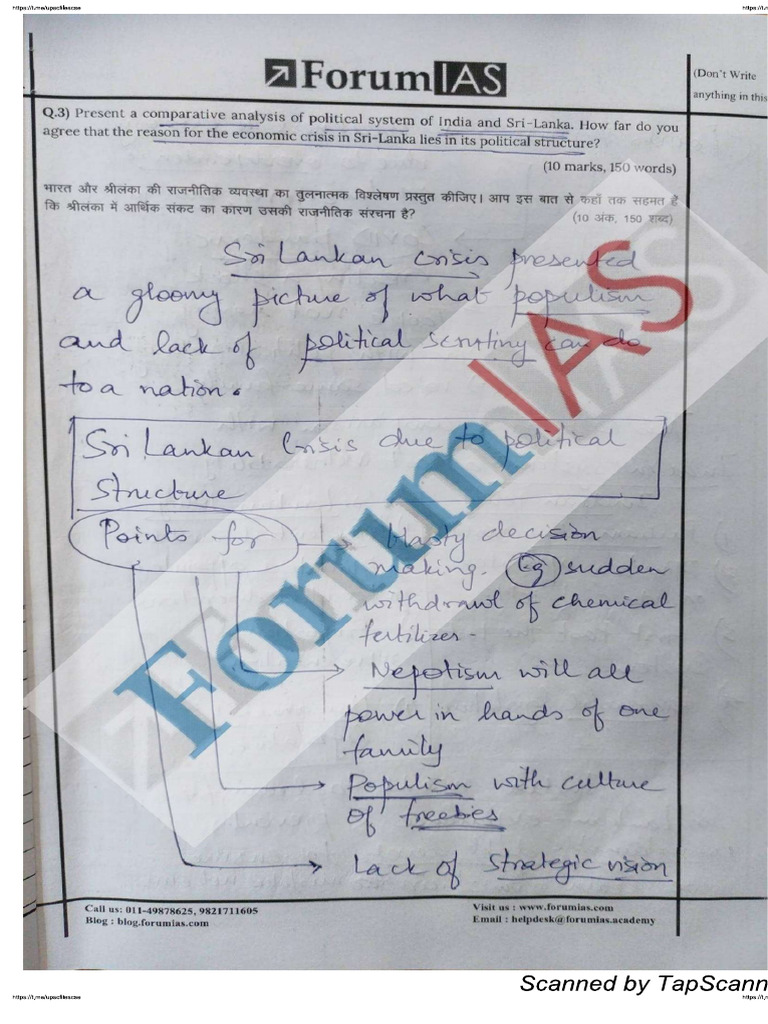 https://t.me/upscfilescse
https://t.m
ForumIAS
(Don't Write
anything in this
Q.3) Present a comparative analysis of political system of India and Sri-Lanka. How far do you
agree that the reason for the economic crisis in Sri-Lanka lies in its political structure?
(10 marks, 150 words)
भारत और श्रीलंका की राजनीतिक व्यवस्था का तुलनात्मक विश्लेषण प्रस्तुत कीजिए। आप इस बात से कहाँ तक सहमत है
कि श्रीलंका में आर्थिक संकट का कारण उसकी राजनीतिक संरचना है?
(10 अंक, 150 शब्द)
Sri Lankan crisis presented
a gloomy picture of what populism
and lack of political scrutiny can do
to a nation.
Sri Lankan Crisis due to political
structure
Points for
Hasty decision
making. Eg sudden
withdrawl of chemical
fertilizer-
Nepotism will all
power in hands of one
family
Populism with culture
of freebies
Lack of strategic vision
ForumIAS
Call us: 011-49878625, 9821711605
Blog : blog.forumias.com
Visit us : www.forumias.com
Email : helpdesk@forumias.academy
Scanned by TapScann
https://t.me/upscfilescse
https://t.m